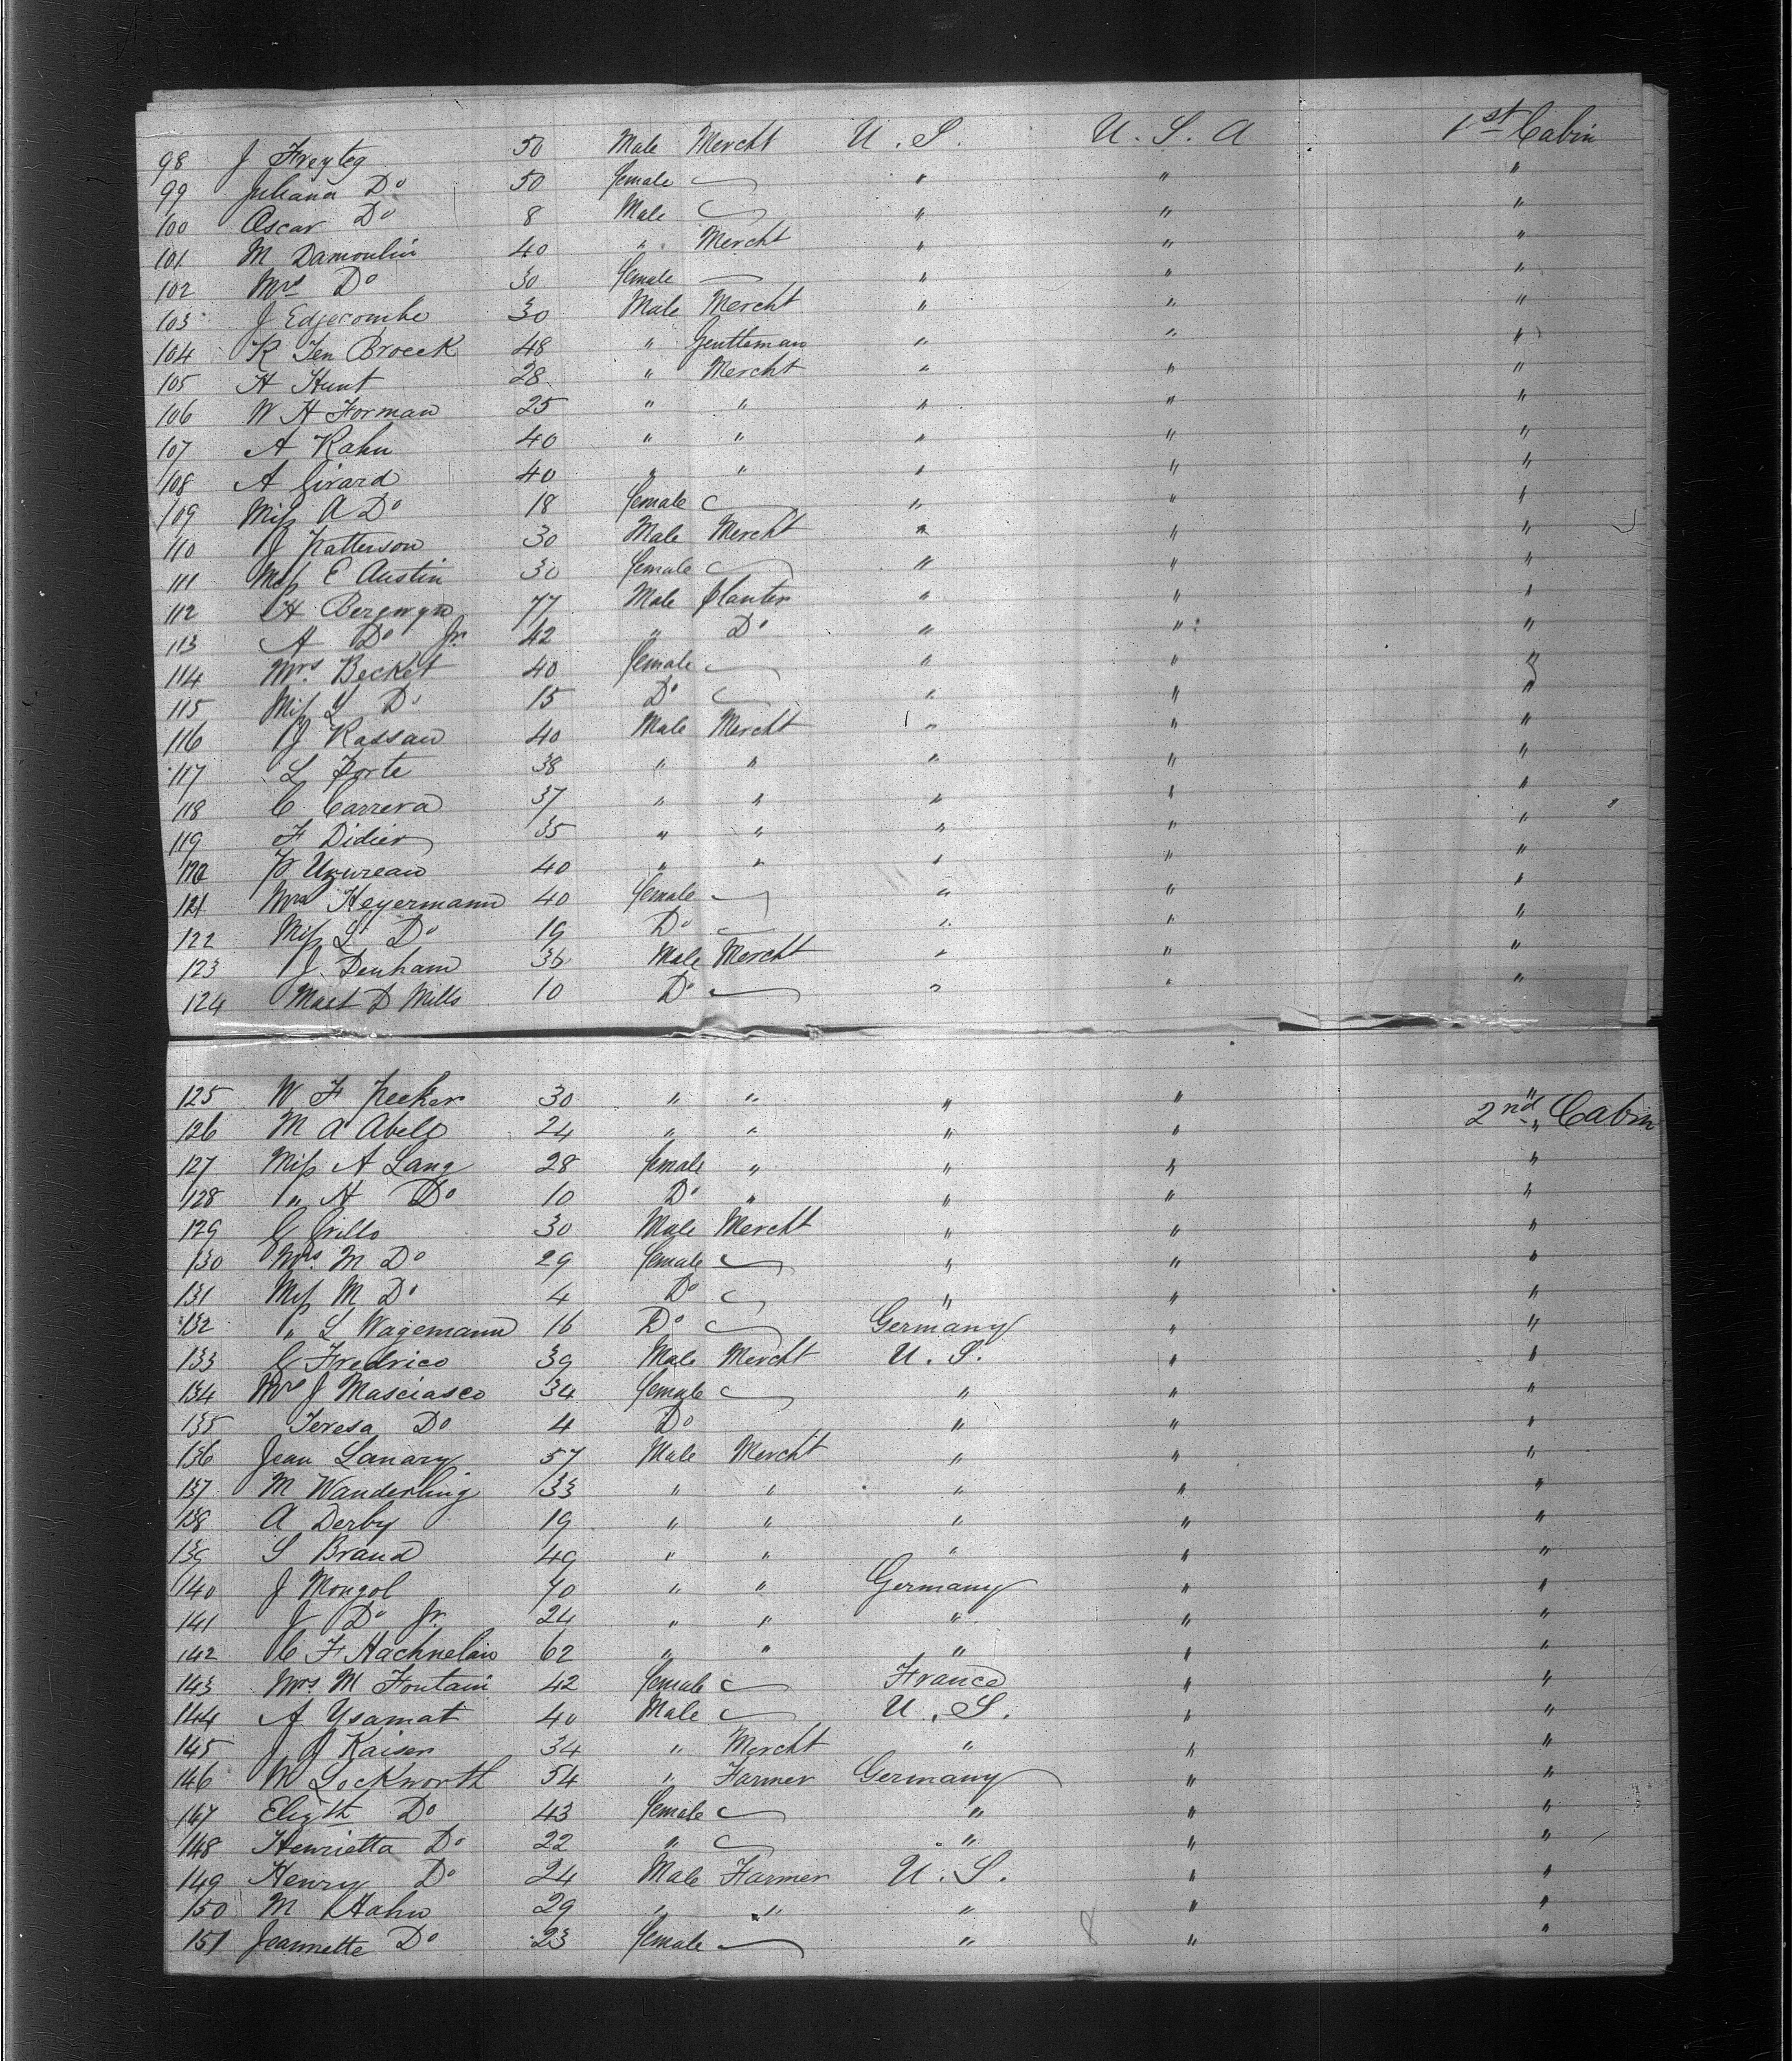 98 J Freyteg 50 Male Mercht U. S. U. S. A 1st Cabin
99 Juliana Do 50 female " " "
100 Oscar Do 8 Male " " "
101 M Damoulin 40 " Mercht " " "
102 Mrs Do 30 female — " " "
103 J Edgecombe 30 Male Mercht " " "
104 R Ten Broeck 48 " Gentleman " " "
105 H Hunt 28 " Mercht " " "
106 W H Forman 25 " " " " "
107 A Kahn 40 " " " " "
108 A Girard 40 " " " " "
109 Miss A Do 18 female " " "
110 J Patterson 30 Male Mercht " " "
111 Miss E Austin 30 female " " "
112 H Bergwyn 77 Male Planter " " "
113 A Do Jr. 42 " Do " " "
114 Mrs. Becket 40 female " " "
115 Miss L Do 15 Do " " "
116 J Kassan 40 Male Mercht " " "
117 L Porte 38 " " " " "
118 C Carrera 37 " " " " "
119 F Didier 35 " " " " "
120 40 " " " " "
121 Mrs Heyermann 40 female " " "
122 Miss L Do 19 Do " " "
123 J. Denham 36 Male Mercht " " "
124 Mast D Mills 10 Do " " "
125 W F Peeker 30 " " " " "
126 M A Abele 24 " " " " 2nd Cabin "
127 Miss A Lang 28 female " " " "
128 " H Do 10 Do " " " "
129 C Grillo 30 Male Mercht " " "
130 Mrs. M Do 29 female " " "
131 Miss M Do 4 Do " " "
132 " L Wagemann 16 Do Germany " "
133 C Fredrico 39 Male Mercht U. S. " "
134 Mrs J Masciasco 34 female " " "
135 Teresa Do 4 Do " " "
136 Jean Lanary 57 Male Mercht " " "
137 M Wanderling 33 " " " " "
138 A Derby 19 " " " " "
139 S Brand 49 " " " " "
140 J Mongol 70 " " Germany " "
141 J Do Jr. 24 " " " " "
142 C F 62 " " " " "
143 Mrs. M Fontain 42 female France " "
144 A Ysamat 40 Male U. S. " "
145 J J Kaiser 34 " Mercht " " "
146 W Lockworth 54 " Farmer Germany " "
147 Elizth Do 43 female " " "
148 Henrietta Do 22 " " " "
149 Henry Do 24 Male Farmer U. S. " "
150 M Hahn 29 " " " " "
151 Jeannette Do 23 female " 8 " "